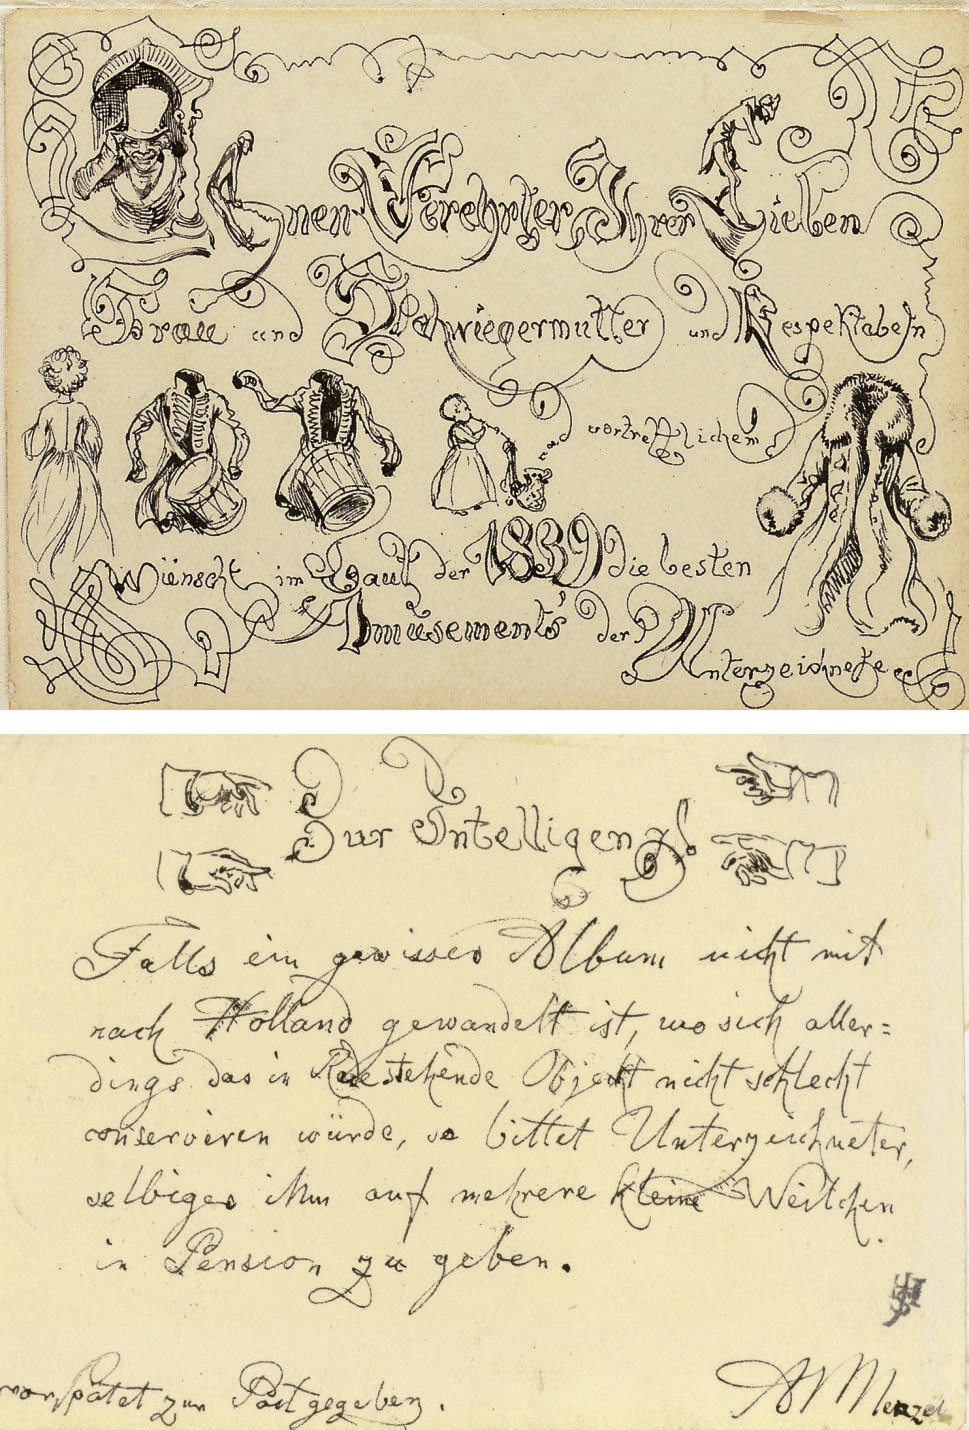 Ihnen Verehrter, Ihrer Lieben
Frau und Schwiegermutter und Respektabeln
und vortrefflichen
wünscht im Lauf der 1839 die besten
Amusements' der Unterzeichnete
Zur Intelligenz!
Falls ein gewisses Album nicht mit
nach Holland gewandelt ist, wo sich aller=
dings das in Rede stehende Objekt nicht schlecht
conserviren würde, so bittet Unterzeichneter,
selbiges ihm auf mehrere kleine Weilchen
in Pension zu geben.
verspätet zur Post gegeben.
A Menzel